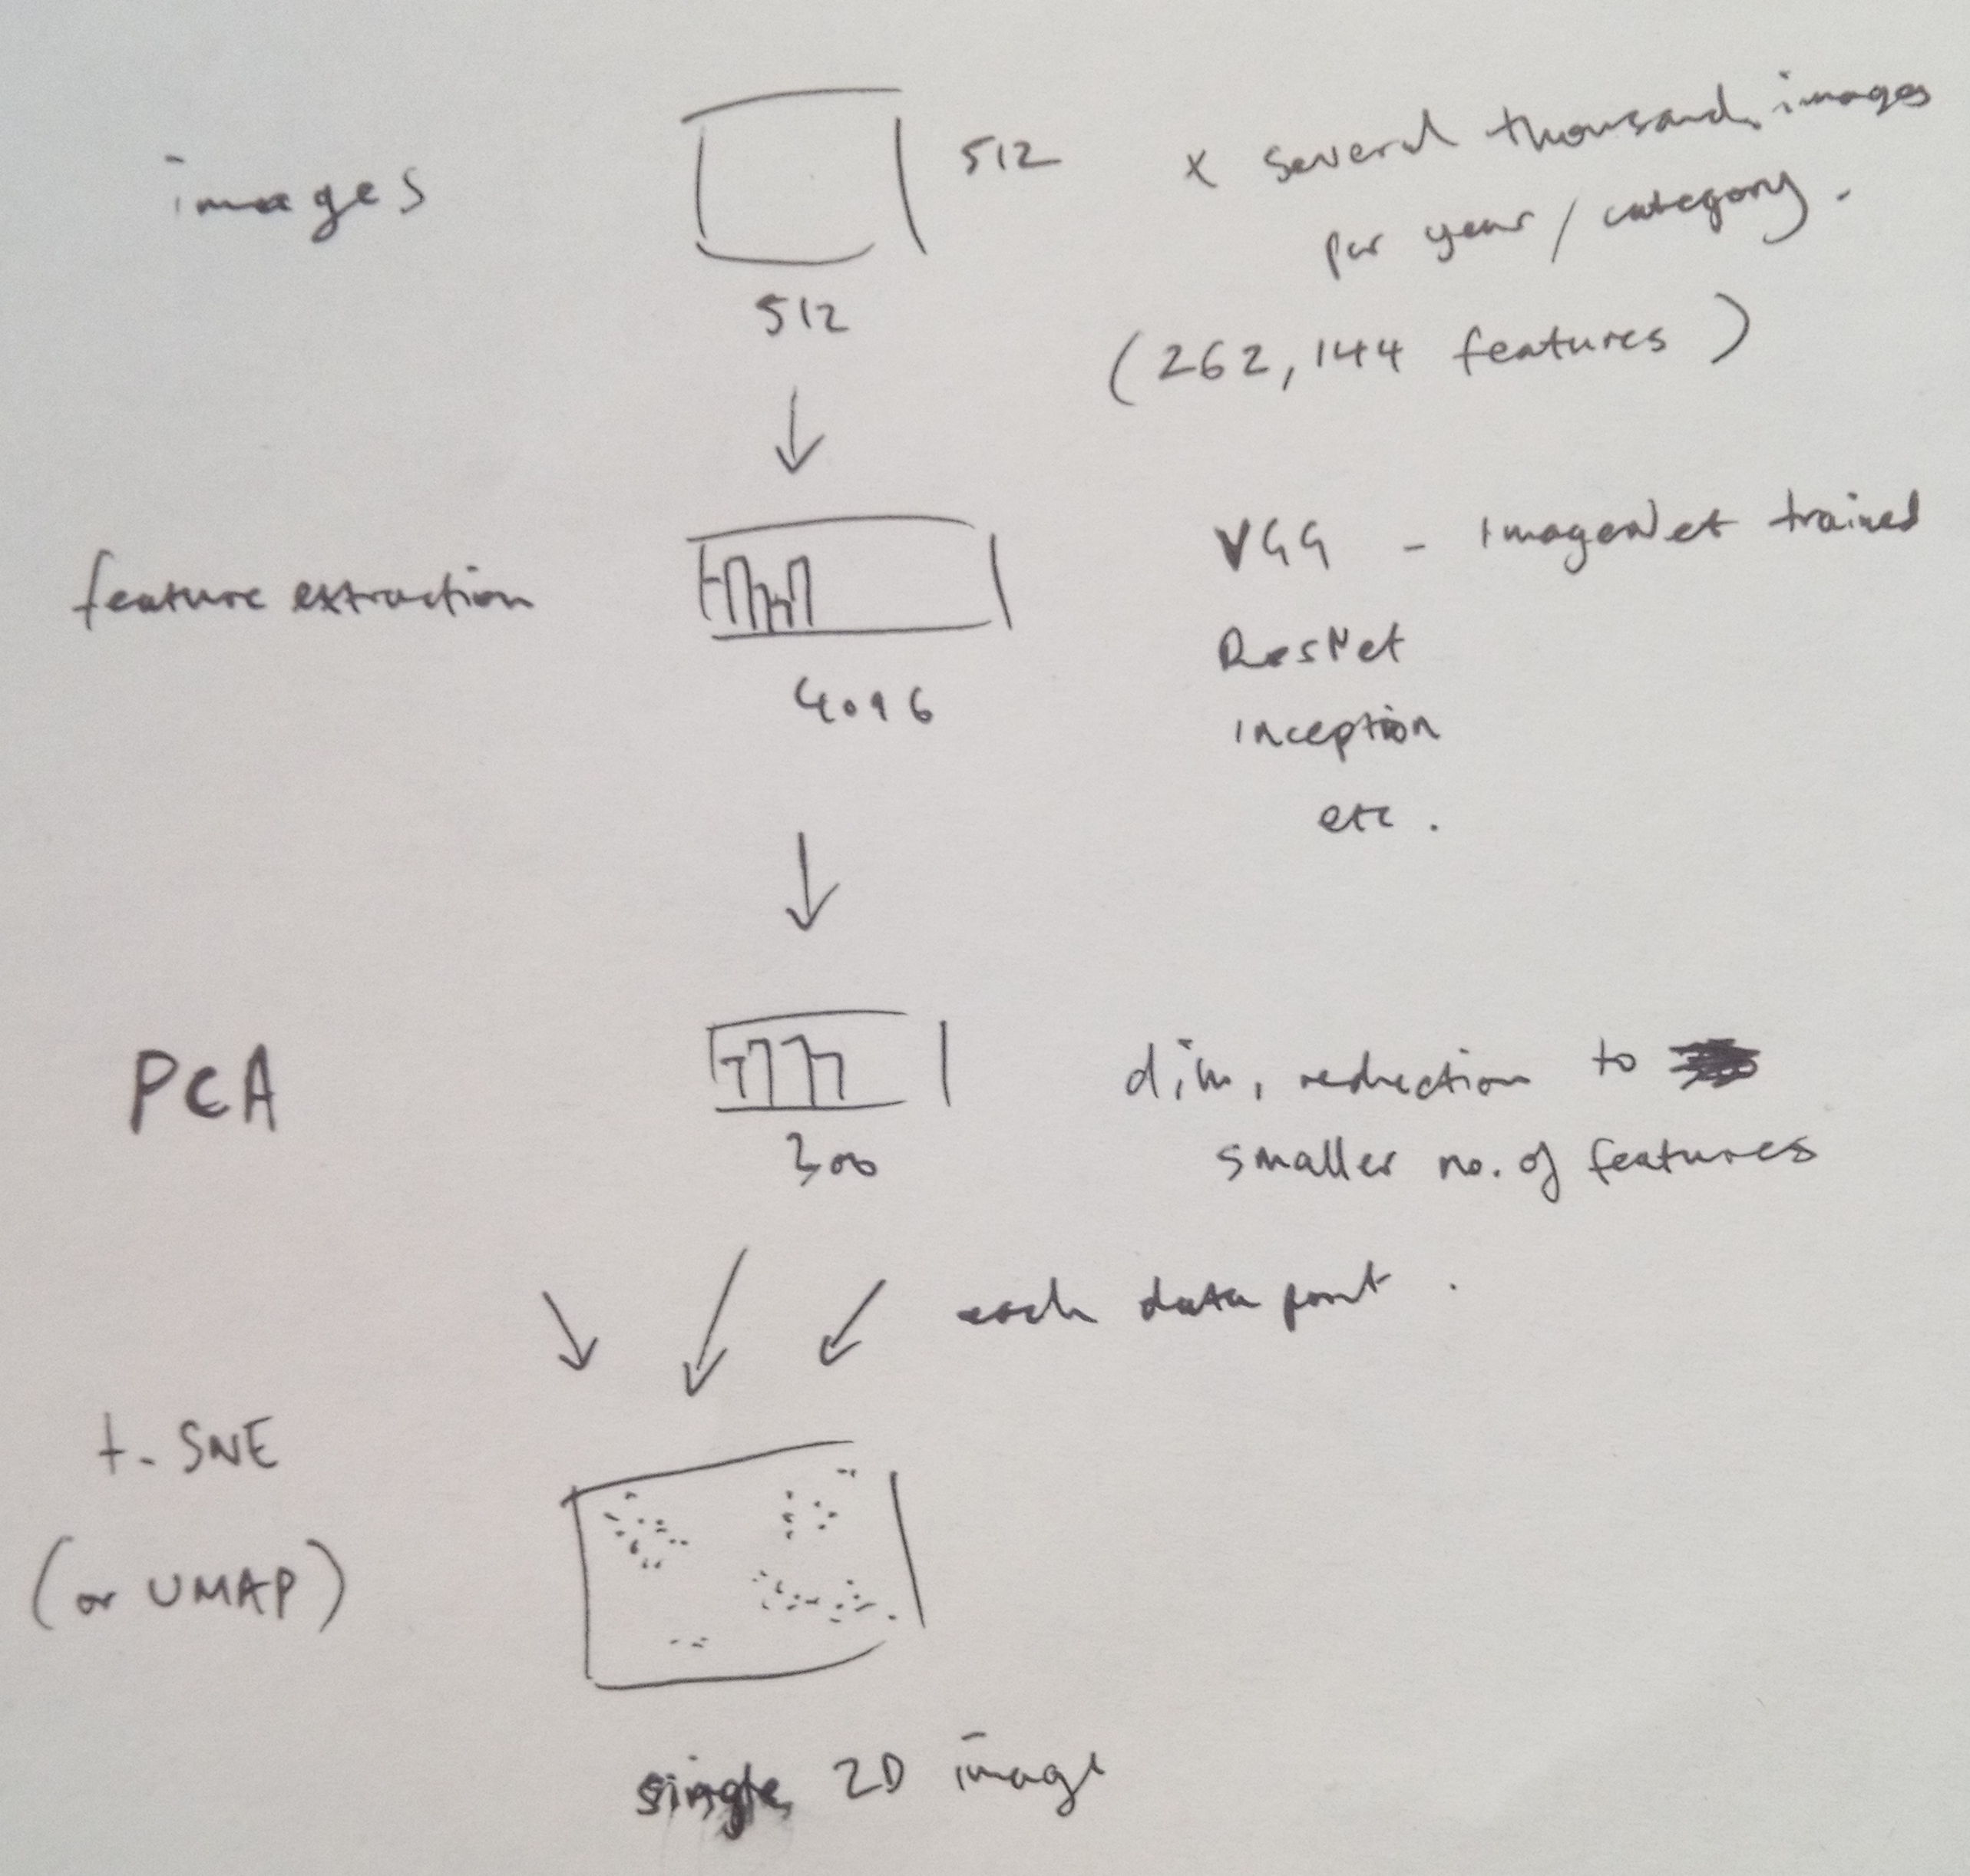 images
512
x several thousand images
per year / category.
512
(262,144 features)
feature extraction
VGG - ImageNet trained
ResNet
4096
inception
etc.
PCA
dim, reduction to
300
smaller no. of features
each data point.
t-SNE
(or UMAP)
single 2D image